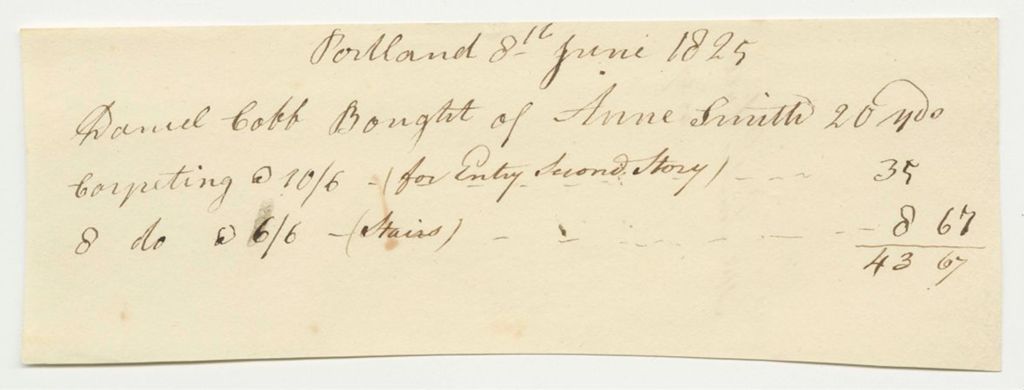 Portland 8th June 1825
Daniel Cobb Bought of Anne Smith 20 yds
Carpeting @ 10/6 - (for Entry Second Story) - - - 35
8 do @ 6/6 - (Stairs) - - - - - - - 8 67
43 67